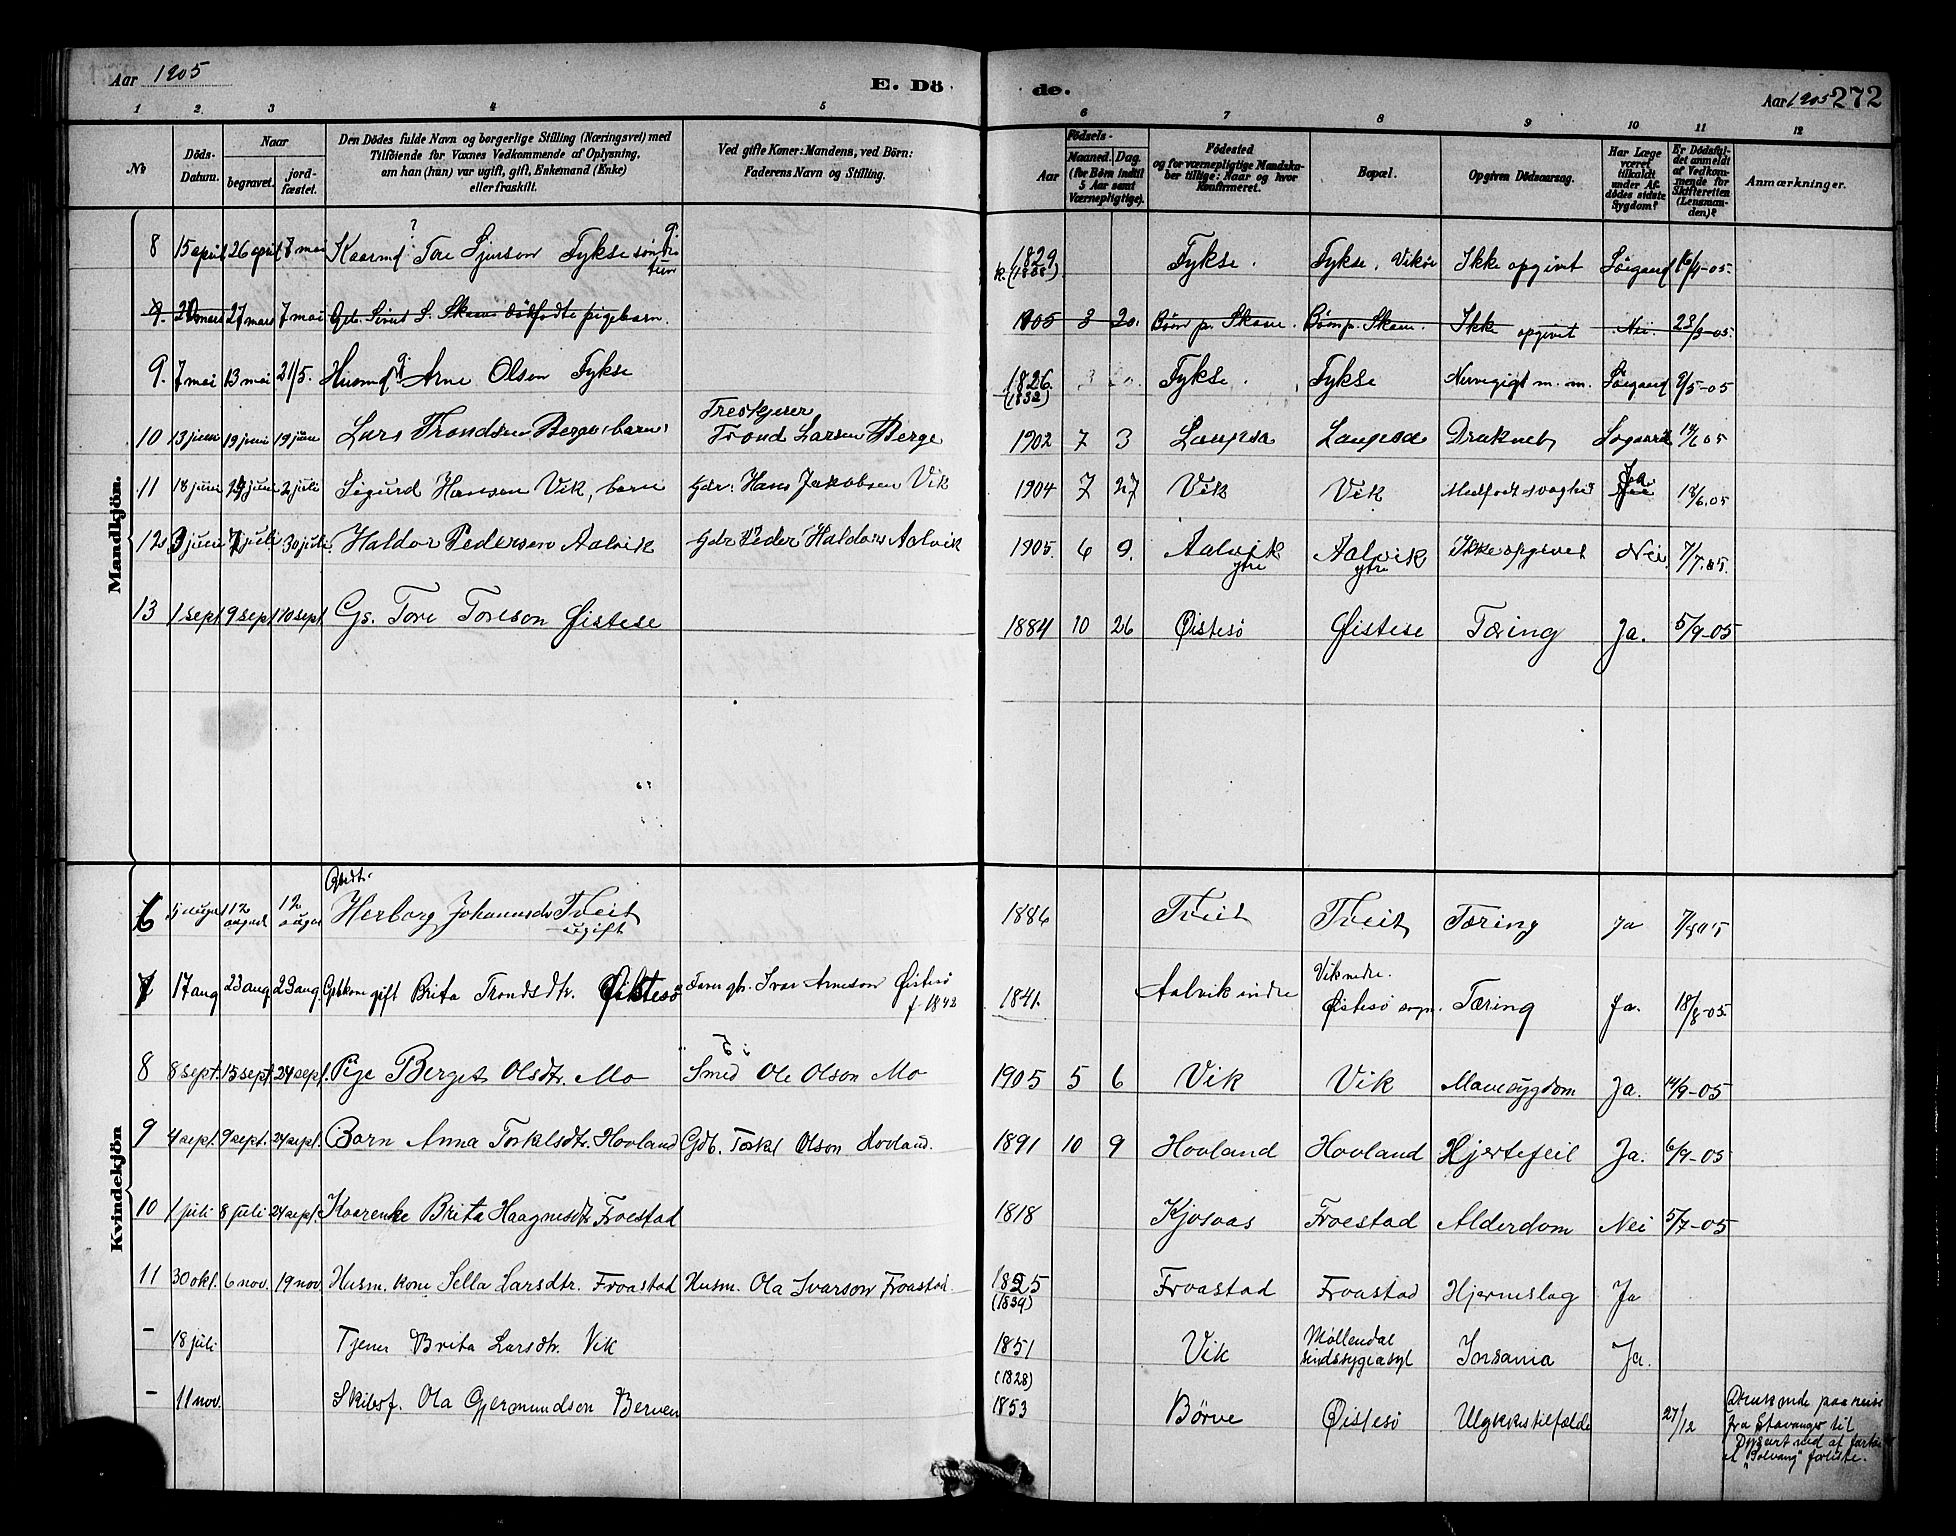 Aar 1905 E. Dö de. Aar 1905 272
1 2. 3 4 5 6 7 8 9 10 11 12
No Döds-Datum. Naar begravet. jord-fæstet. Den Dödes fulde Navn og borgerlige Stilling (Næringsvei) med Tilföiende for Voxnes Vedkommende af Oplysning, om han (hun) var ugift, gift, Enkemand (Enke) eller fraskilt. Ved gifte Koner: Mandens, ved Börn: Faderens Navn og Stilling. Aar Födsels- Maaned. Dag. (for Börn indtil 5 Aar samt Værnepligtige). Födested og for værnepligtige Mandskaber tillige: Naar og hvor konfirmeret. Bopæl. Opgiven Dödsaarsag. Har Læge været tilkaldt under Afdödes sidste Sygdom? Er Dödsfaldet anmeldt af Vedkommende for Skifteretten (Lensmanden)? Anmærkninger.
Mandkjön.
8 15 april 26 april 7 mai Kaarmd Tore Sjurson Fykse 1829 Fykse. Fykse, Vikör Ikke opgivet
9. 20 mars 27 mars 7 mai Gdb. Sivert S. Skaar dödfødte pigebarn. 1905 3 20. Ikke opgivet Nei. 23/3-05.
9. 7 mai 13 mai 21/5. Husmd Arne Olsen Fykse 1826. (1832) Fykse. Fykse Nervegigt m. m. 9/5-05
10 13 juni 19 juni 19 juni Lars Trondsen Berge barn Treskjærer Trond Larsen Berge 1902 7 3 Laupsa Laupsa Druknet
11 18 juni 2 juli Sigurd Hansen Vik, barn Gdr. Hans Jakobsen Vik 1904 7 27 Vik Vik Medfødt svaghed Ja
12 juli 30 juli. Haldor Pedersen Aalvik Gdr Peder Haldors Aalvik 1905. 6 9. Aalvik ytre Aalvik ytre Ikke opgivet Nei 7/7.05.
13 1 sept 9 sept 10 sept Gs. Tore Toreson Øistese 1884 10 26 Øistesö Øistese Tæring Ja. 5/9-05
Kvindekjön
6 5 august 12 august 12 august Gbdtr. Herborg Johannesdr Tveit ugift 1886 Tveit Tveit Tæring Ja
7 17 aug 23 aug. 23 aug. Gbkone gift Brita Trondsdtr. Øistesö Ivar Arneson Øistesö f. 1842 1841. Aalvik indre Vik nedre. Øistesö sogn. Tæring Ja. 18/8-05.
8 8 sept. 15 sept. 24 sept. Pige Berget Olsdtr. Mo Smed Ole Olson Mo 1905 5 6 Vik Vik Mavesygdom Ja. 14/9-05
9 4 sept. 9 sept. 24 sept. Barn Anna Torkelsdtr. Hovland Gdb. Torkel Olson Hovland. 1891 10 9 Hovland Hovland Hjertefeil Ja. 6/9-05
10 1 juli 8 juli 24 sept. Kaarenke Brita Haagnesdtr Froestad 1818 Kjosaas Froestad Alderdom Nei 5/7-05
11 30 okt. 6 nov. 19 nov. Husm. kone Sella Larsdtr. Froastad Husm. Ola Ivarson Froastad. (1839) Froastad Froastad Hjerneslag Ja
- 18 juli Tjener Brita Larsdtr. Vik 1851 Vik Møllendal sindssygeasyl Insania Ja.
- 11 nov. Skibsf. Ola Gjermundson Berven (1828) 1853 Börve Øistesö Ulykkestilfælde 27/12 Druknede paa reise fra Stavanger til Dysart ved at fartöiet "Solvang" forliste.